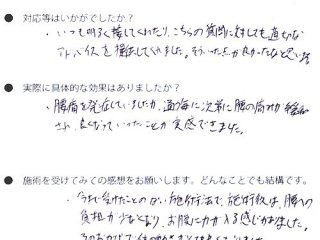 ● 対応等はいかがでしたか？
・いつも明るく接してくれたり、こちらの質問に対しても適切な
アドバイスを提示してくれました。そういった点が良かったなと思います
● 実際に具体的な効果はありましたか？
・腰痛を発症していましたが、通う毎に次第に腰の痛みが緩和
され良くなっていったことが実感できました。
● 施術を受けてみての感想をお願いします。どんなことでも結構です。
・今まで受けたことのない施術方法で、施術後は、腰への
負担が少なくなり、お腹に力が入る感じがありました。
そのおかげで体の動き